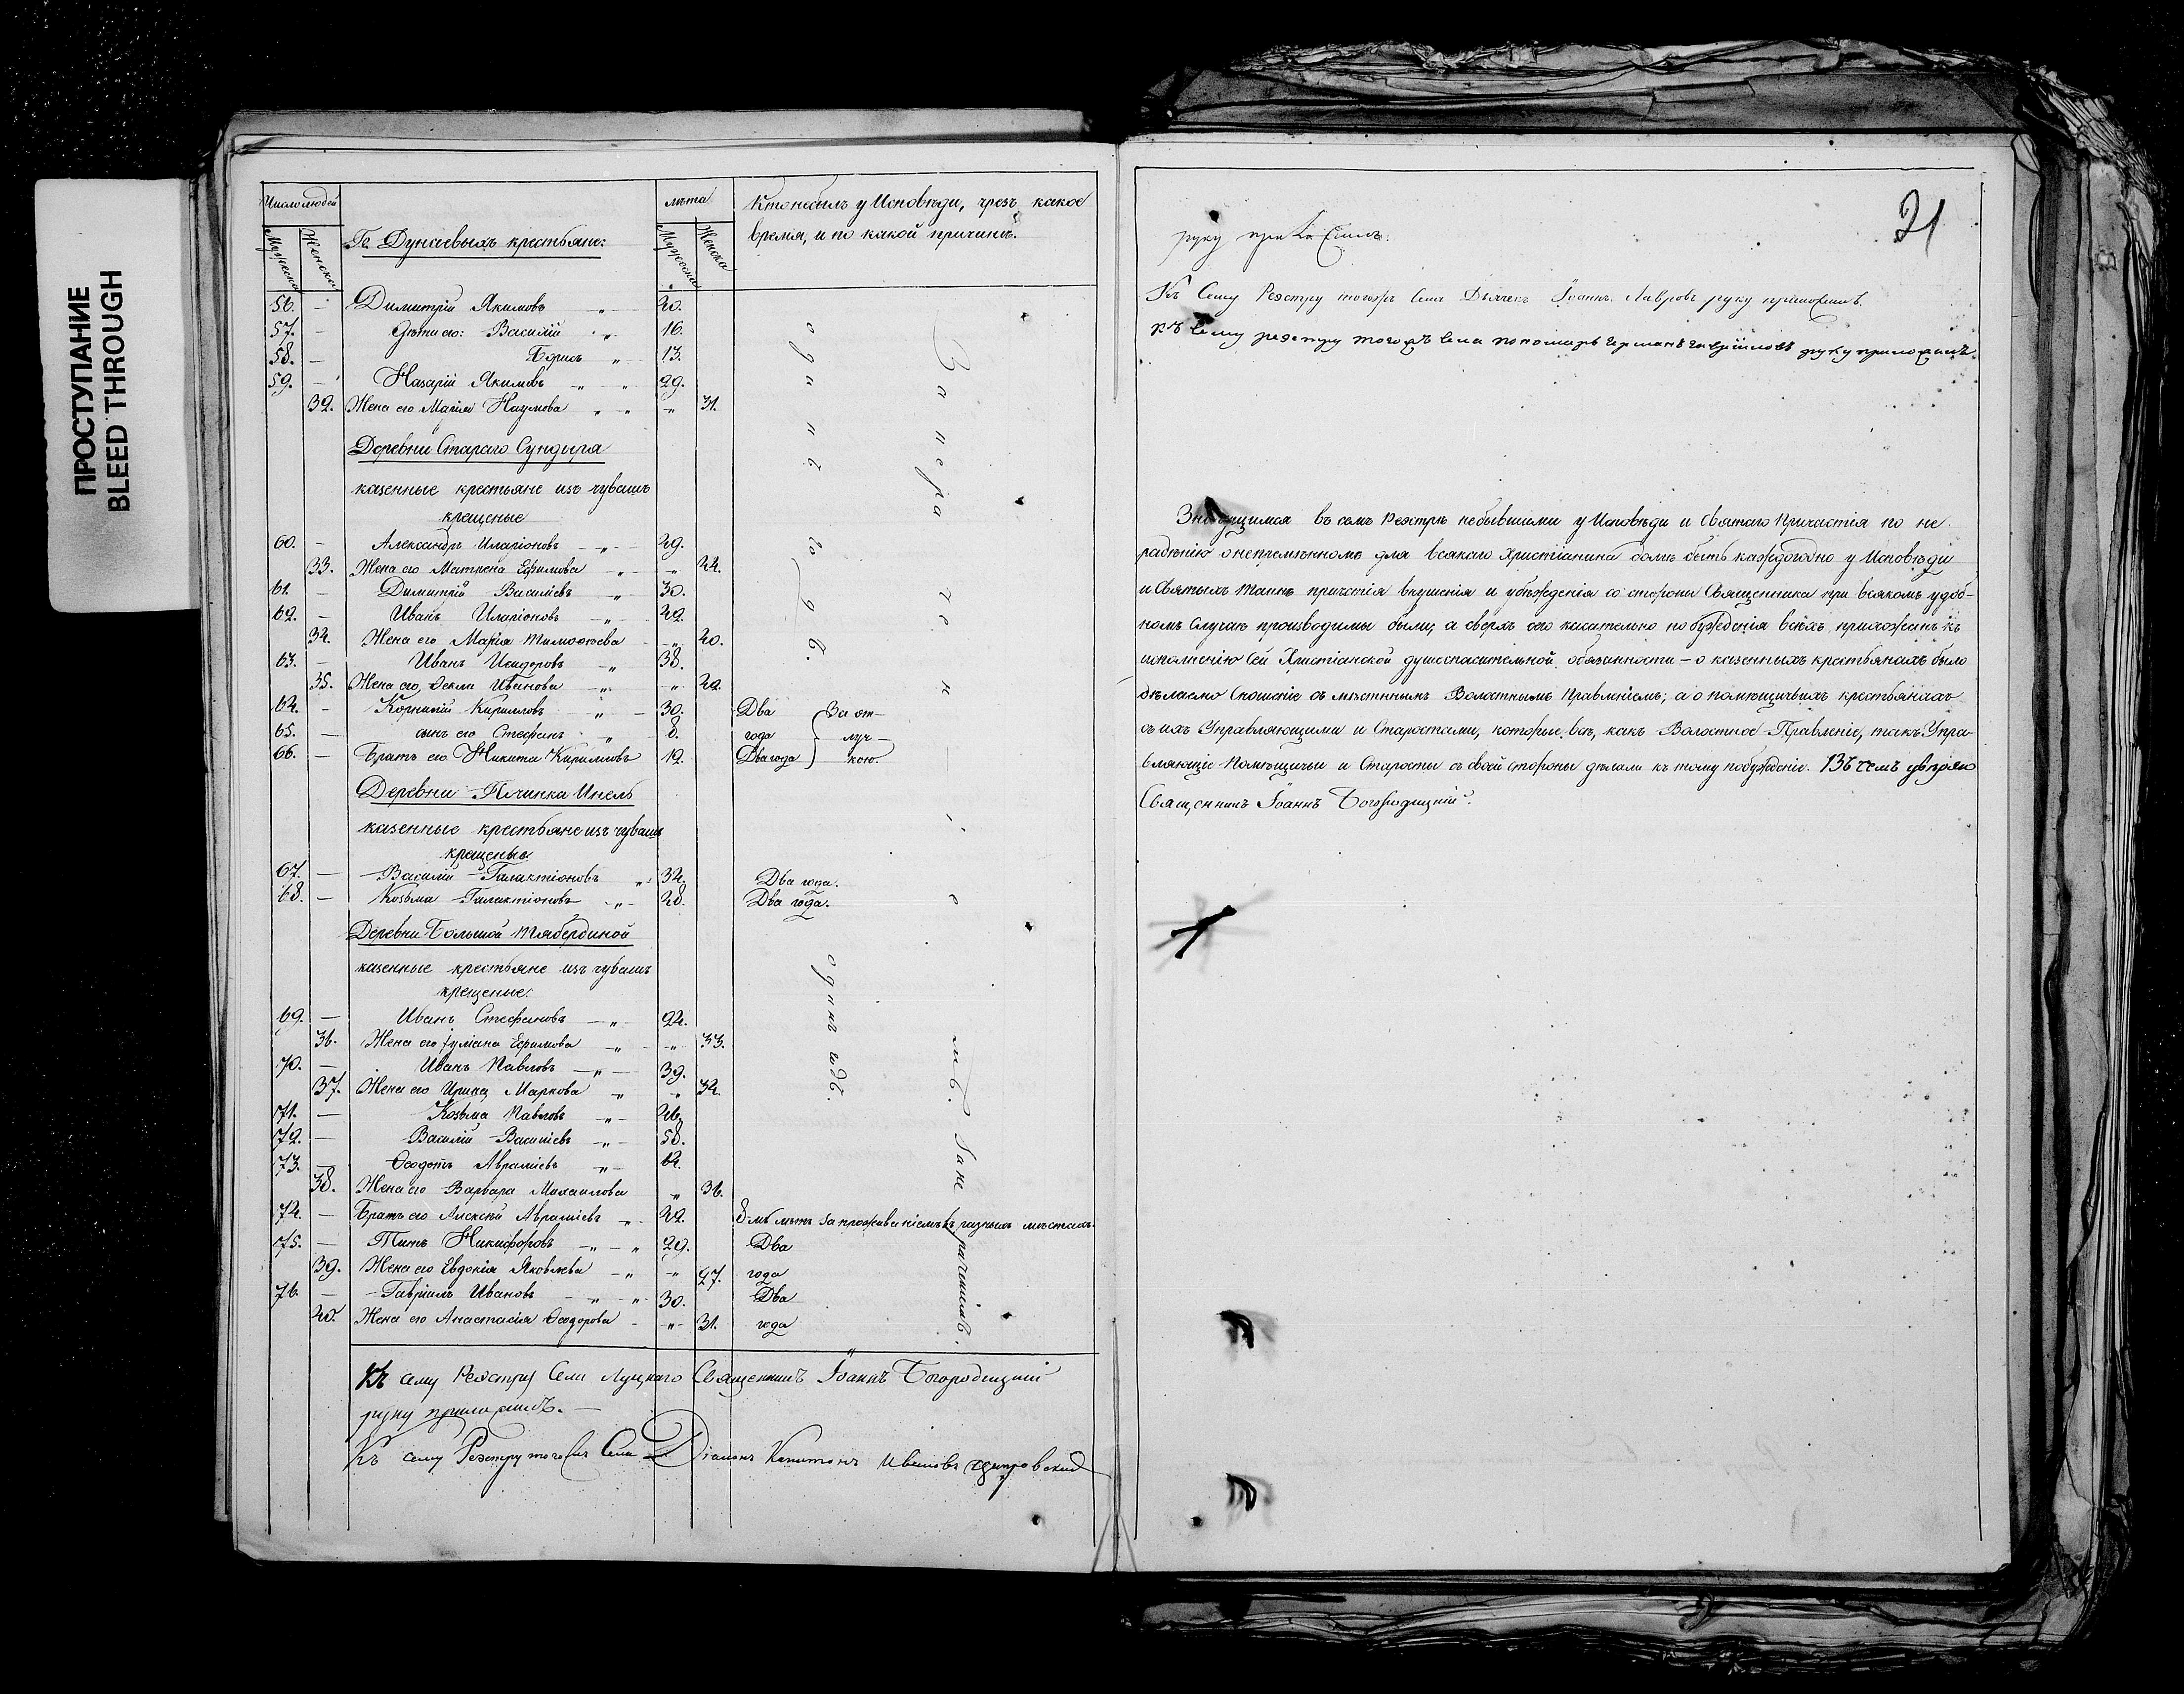 ПРОСТУПАНИЕ
BLEED THROUGH
Число людей
Мужеска
Женска
Гг. Дунаевыхъ крестьяне:
лѣта
Мужеска
Женска
Кто не былъ у Исповѣди, чрезъ какое
время, и по какой причинѣ.
56. – Димитрій Якимовъ „ 20.
57. – Дѣти его: Василій „ 16.
58. – Борисъ „ 13.
59. – Назарій Якимовъ „ „ 29.
32. Жена его Марія Наумова „ „ „ 31.
Деревни Стараго Сундыря
казенные крестьяне изъ чувашъ
крещеные
60. – Александръ Иларіоновъ – „ – 29.
33. Жена его Матрена Ефимова „ „ 24.
61. – Димитрій Василіевъ „ 30.
62. – Иванъ Иларіоновъ – „ 42.
34. Жена его Марія Тимоѳеева – „ 40.
63. – Иванъ Исидоровъ „ 38.
35. Жена его Ѳекла Иванова – „ „ 42.
64. – Корнилій Кирилловъ „ – 30. Два } За от–
65. – сынъ его Стефанъ – „ 8. года } луч–
66. – Братъ его Никита Кирилловъ 12. Два года } кою.
одинъ годъ.
За нера че ні е мъ.
Деревни Пичинка Инель
казенные крестьяне изъ чувашъ
крещеные
67. – Василій Галактіоновъ „ 34. Два года.
68. – Козьма Галактіоновъ „ 28. Два года.
Деревни Большой Тябердиной
казенные крестьяне изъ чувашъ
крещеные.
69. – Иванъ Стефановъ – „ 24.
36. Жена его Іуліана Ефимова „ – „ 33.
70. – Иванъ Павловъ – „ – 39.
37. Жена его Ирина Маркова „ „ 34.
71. – Козьма Павловъ „ 26.
72. – Василій Василіевъ – „ – 58.
73. – Ѳеодотъ Авраміевъ „ – 64.
38. Жена его Варвара Михаилова „ 36.
74. – Братъ его Алексѣй Авраміевъ „ 42. 8мь лѣтъ за проживаніемъ въ разныхъ мѣстахъ.
75. – Титъ Никифоровъ – „ – „ 29. Два
39. Жена его Евдокія Яковлева – „ – „ 27. года
76. – Гавріилъ Ивановъ – „ – „ 30. Два
40. Жена его Анастасія Ѳеодорова – „ 31. года
одинъ годъ.
За не раченіемъ.
Къ сему Реэстру Села Луцкаго Священникъ Іоаннъ Богородицкій
руку приложилъ. –
Къ сему Реэстру тогожъ Села Діаконъ Капитонъ Ивановъ
21
руку приложилъ.
Къ Сему Реэстру тогожъ Села Дьячекъ Іоаннъ Лавровъ руку приложилъ.
къ сему реэстру тогожъ села пономарь Германъ Гавриловъ руку приложилъ.
Значущимся въ семъ Реэстрѣ небывшими у Исповѣди и Святаго Причастія по не
радѣнію о непремѣнномъ для всякаго Христіанина долгѣ быть каждогодно у Исповѣди
и Святыхъ Таинъ причастія внушенія и убѣжденія со стороны Священника при всякомъ удоб–
номъ случаѣ производимы были, а сверхъ сего касательно побужденія всѣхъ прихожанъ къ
исполненію сей Христіанской душеспасительной обязанности – о казенныхъ крестьянахъ было
дѣлаемо сношеніе съ мѣстнымъ Волостнымъ Правленіемъ; а о помѣщичьихъ крестьянахъ
съ ихъ Управляющими и Старостами, которые всѣ, какъ Волостное Правленіе, такъ Упра–
вляющіе Помѣщичьи и Старосты съ своей стороны дѣлали къ тому побужденіе. Въ чемъ увѣряю
Священникъ Іоаннъ Богородицкій.